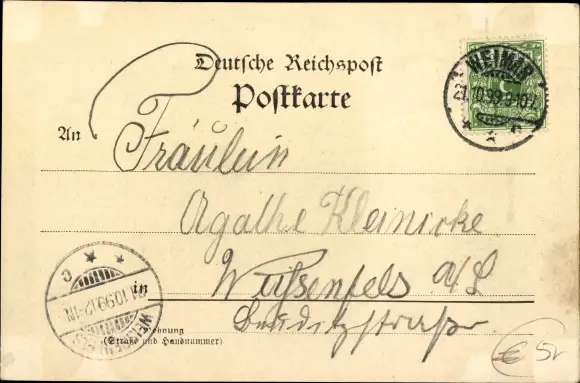 Deutsche Reichspost
Postkarte
WEIMAR
21.10.99.9-10V.
An
Fräulein
Agathe Kleinicke
in Weissenfels a/S
WEISSENFELS
21.10.99.12-1N.
C
Wohnung
(Straße und Hausnummer)
€ 5,-